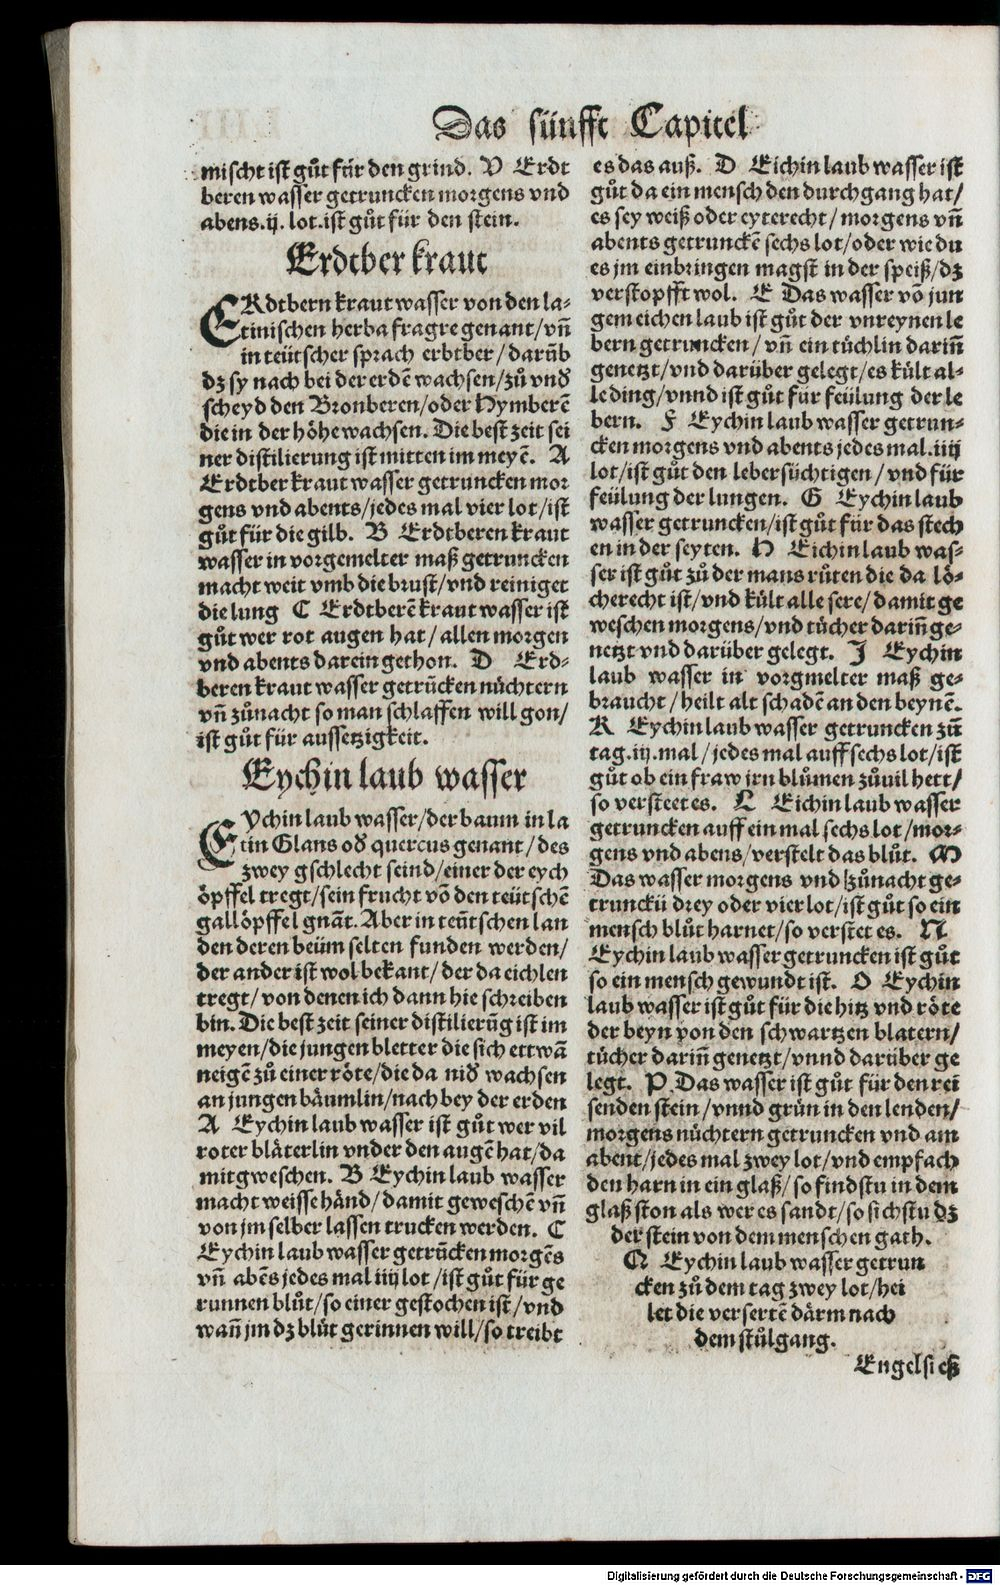 Das fünfft Capitel
mischt ist gůt für den grind. V Erdt
beren wasser getruncken morgens vnd
abens.ij. lot.ist gůt für den stein.
Erdtber kraut
ERdtbern kraut wasser von den la-
tinischen herba fragre genant/vn̄
in teütscher sprach erbtber/darūb
dz sy nach bei der erdē wachsen/zů vnd̕
scheyd den Bronberen/oder Hymberē
die in der höhe wachsen. Die best zeit sei
ner distilierung ist mitten im meyē. A
Erdtber kraut wasser getruncken mor
gens vnd abents/jedes mal vier lot/ist
gůt für die gilb. B Erdtberen kraut
wasser in vorgemelter maß getruncken
macht weit vmb die brust/vnd reiniget
die lung C Erdtberē kraut wasser ist
gůt wer rot augen hat/allen morgen
vnd abents darein gethon. D Erd-
beren kraut wasser getrūcken nüchtern
vn̄ zůnacht so man schlaffen will gon/
ist gůt für aussetzigkeit.
Eychin laub wasser
EYchin laub wasser/der baum in la
tin Glans od̕ quercus genant/des
zwey gschlecht seind/einer der eych
öpffel tregt/sein frucht vō den teütschē
gallöpffel gnāt. Aber in teütschen lan
den deren beüm selten funden werden/
der ander ist wol bekant/der da eichlen
tregt/von denen ich dann hie schreiben
bin. Die best zeit seiner distilierūg ist im
meyen/die jungen bletter die sich ettwā
neigē zů einer röte/die da nid̕ wachsen
an jungen bäumlin/nach bey der erden
A Eychin laub wasser ist gůt wer vil
roter bläterlin vnder den augē hat/da
mit gweschen. B Eychin laub wasser
macht weisse händ/damit geweschē vn̄
von jm selber lassen trucken werden. C
Eychin laub wasser getrūcken morgēs
vn̄ abēs jedes mal iiij lot/ist gůt für ge
runnen blůt/so einer gestochen ist/vnd
wan̄ jm dz blůt gerinnen will/so treibt
es das auß. D Eichin laub wasser ist
gůt da ein mensch den durchgang hat/
es sey weiß oder eyterecht/morgens vn̄
abents getrunckē sechs lot/oder wie du
es jm einbringen magst in der speiß/dz
verstopfft wol. E Das wasser vō jun
gem eichen laub ist gůt der vnreynen le
bern getruncken/vn̄ ein tüchlin darin̄
genetzt/vnd darüber gelegt/es kült al-
le ding/vnnd ist gůt für feülung der le
bern. F Eychin laub wasser getrun-
cken morgens vnd abents jedes mal.iiij
lot/ist gůt den lebersüchtigen/vnd für
feülung der lungen. G Eychin laub
wasser getruncken/ist gůt für das stech
en in der seyten. H Eichin laub was-
ser ist gůt zů der mans růten die da lö-
cherecht ist/vnd kült alle sere/damit ge
weschen morgens/vnd tücher darin̄ ge-
netzt vnd darüber gelegt. J Eychin
laub wasser in vorgmelter maß ge-
braucht/heilt alt schadē an den beynē.
K Eychin laub wasser getruncken zū
tag.iij.mal/jedes mal auff sechs lot/ist
gůt ob ein fraw jrn blůmen zůuil hett/
so versteet es. L Eichin laub wasser
getruncken auff ein mal sechs lot/mor-
gens vnd abens/verstelt das blůt. M
Das wasser morgens vnd zůnacht ge-
trunckü drey oder vier lot/ist gůt so ein
mensch blůt harnet/so verstet es. N
Eychin laub wasser getruncken ist gůt
so ein mensch gewundt ist. O Eychin
laub wasser ist gůt für die hitz vnd röte
der beyn von den schwartzen blatern/
tücher darin̄ genetzt/vnnd darüber ge
legt. P Das wasser ist gůt für den rei
senden stein/vnnd grün in den lenden/
morgens nüchtern getruncken vnd am
abent/jedes mal zwey lot/vnd empfach
den harn in ein glaß/so findstu in dem
glaß ston als wer es sandt/so sichstu dz
der stein von dem menschen gath.
Q Eychin laub wasser getrun
cken zů dem tag zwey lot/hei
let die versertē därm nach
dem stůlgang.
Engelsieß
Digitalisierung gefördert durch die Deutsche Forschungsgemeinschaft - DFG